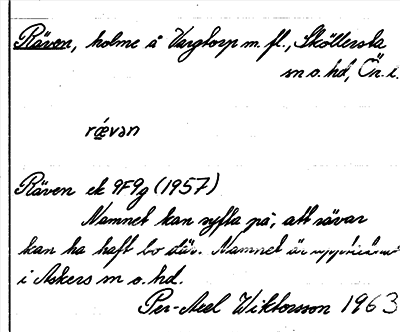 Räven, holme å Vargtorp m. fl., Sköllersta
sn o. hd, Ör. i.
rǽvən
Räven ek 9F9g (1957)
Namnet kan syfta på, att rävar
kan ha haft bo där. Namnet är
i Askers sn o. hd.
Per-Axel Wiktorsson 1963